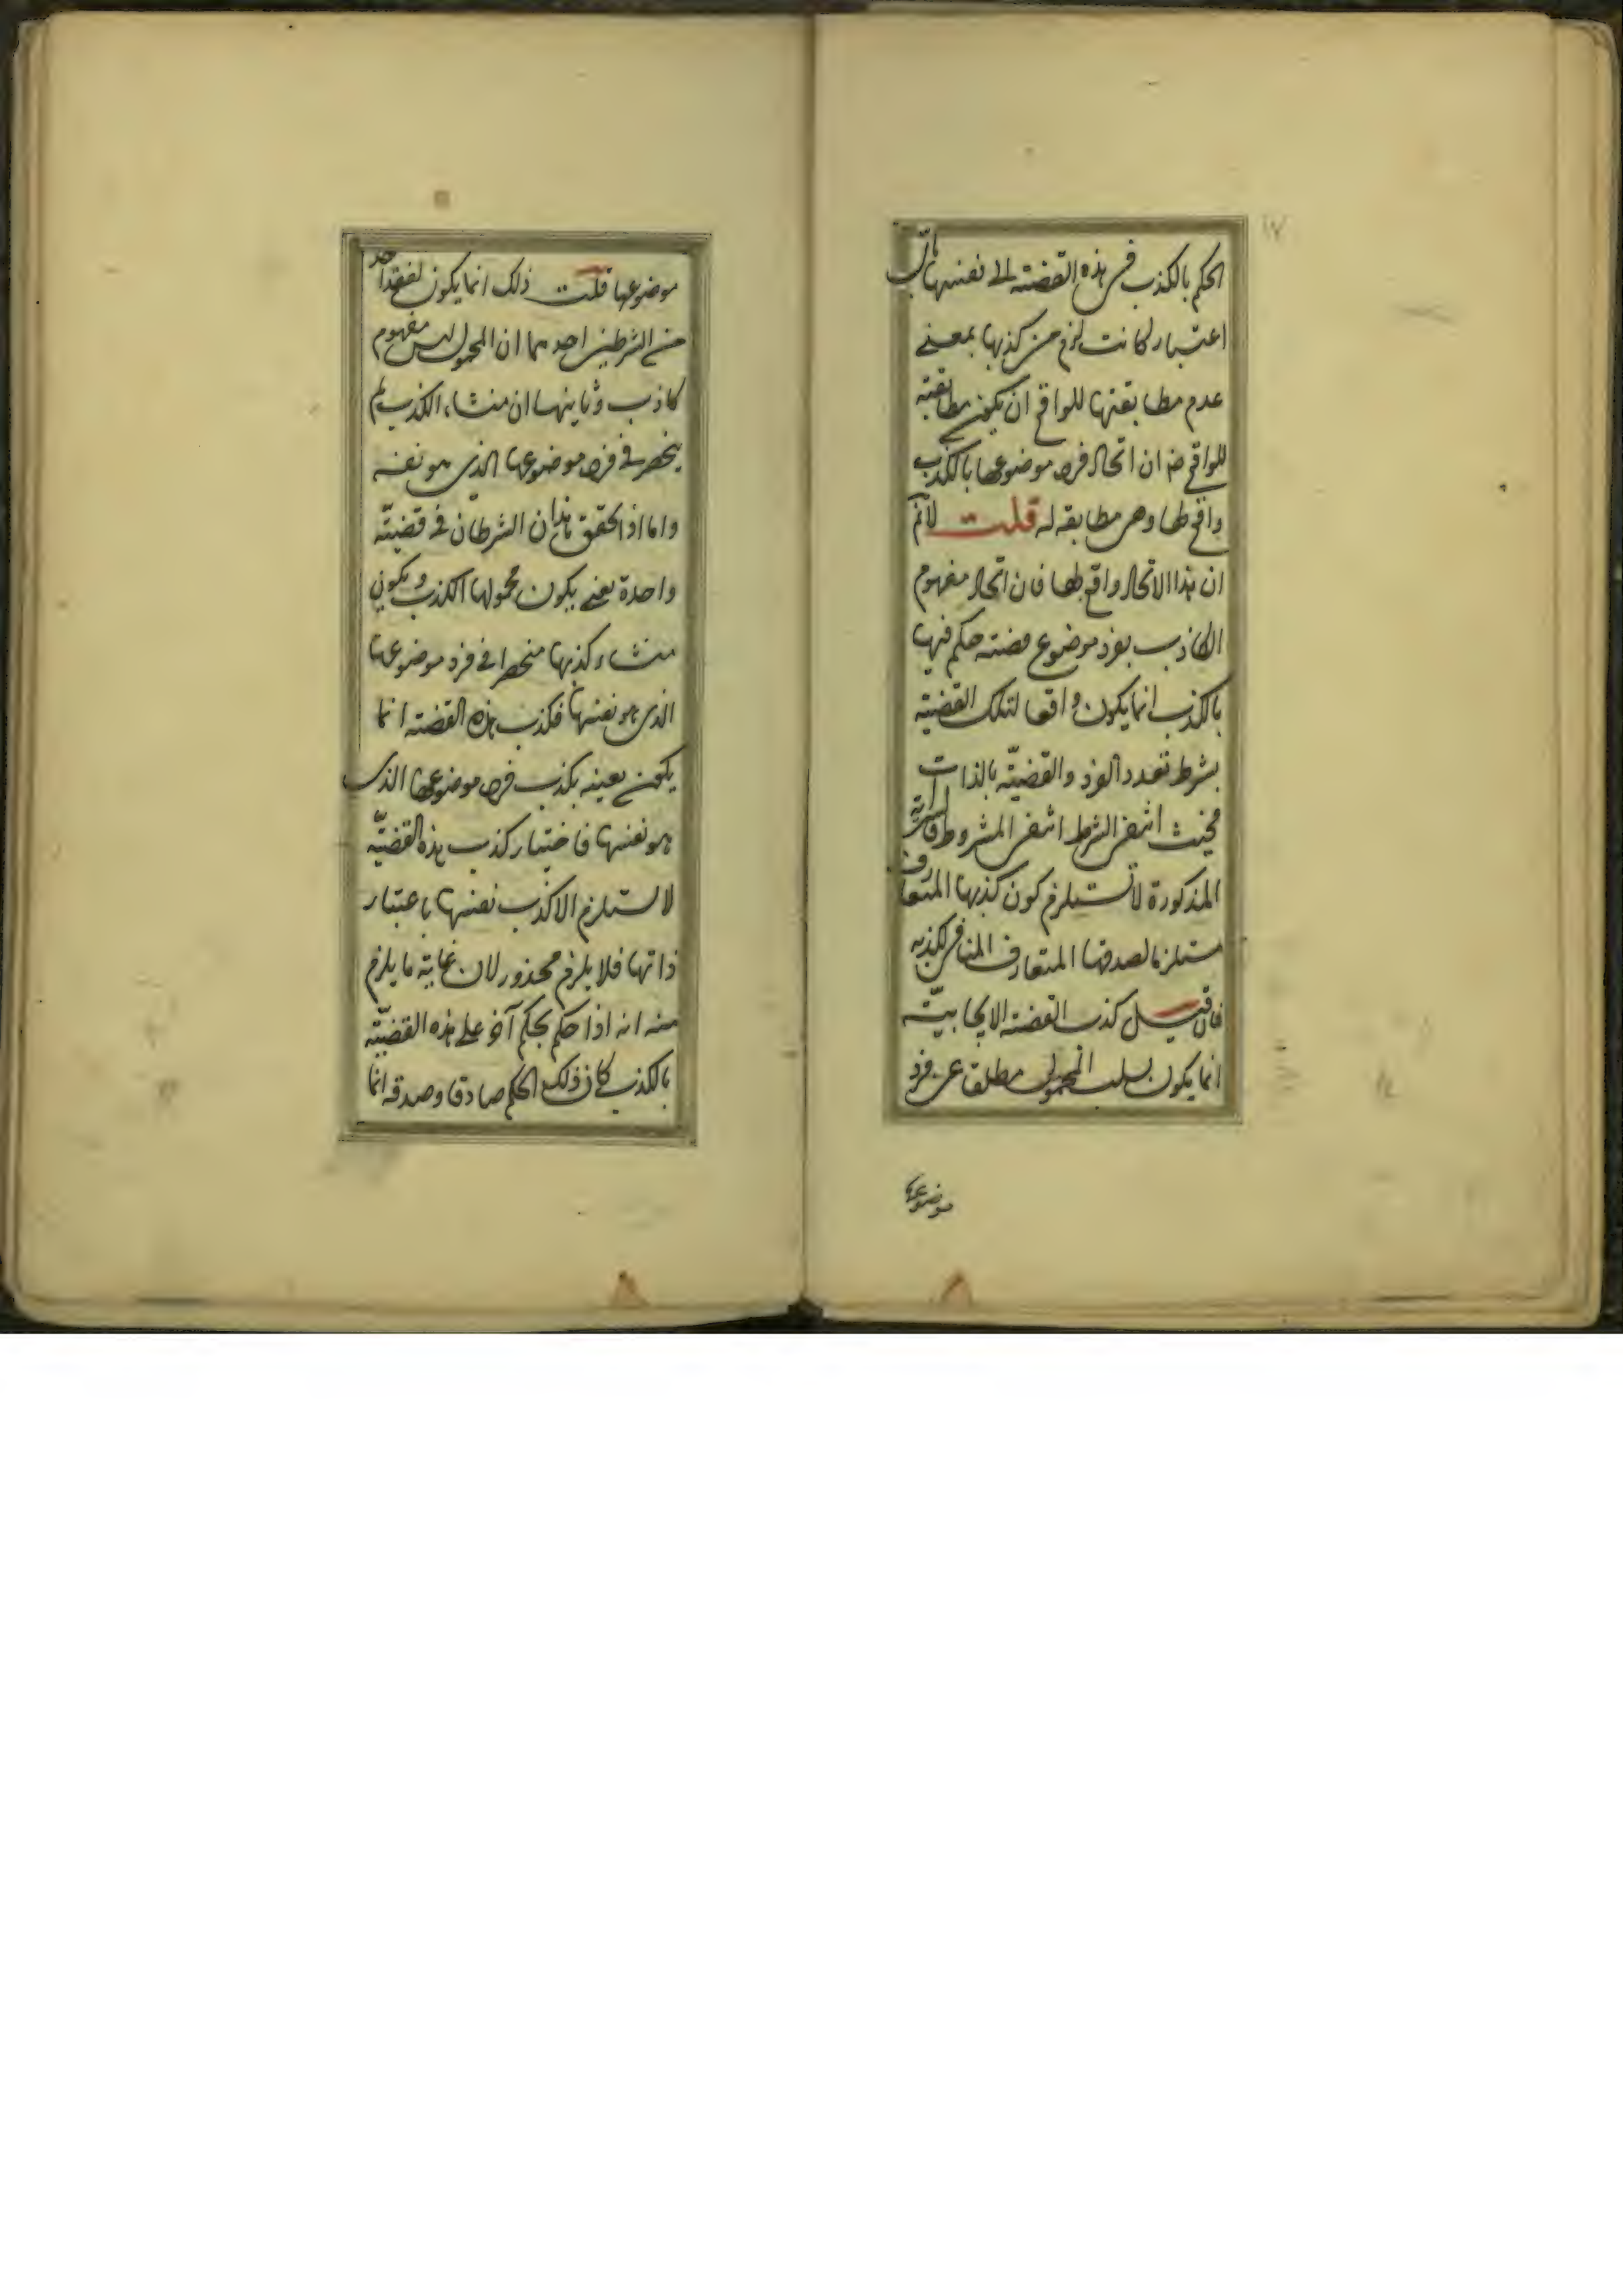 ١٧
الحكم بالكذب فى هذه القضية الى نفسها باى
اعتبار كانت لزم من كذبها بمعنى
عدم مطابقتها للواقع ان يكون مطابقة
للواقع ضـ ان اتحاد فرد موضوعها بالكذب
واقع لها وهى مطابقه له قلت لانم
ان هذا الاتحاد واقع لها فان اتحاد مفهوم
الكاذب بفرد موضوع قضية حكم فيها
بالكذب انما يكون واقعا لتلك القضية
بشرط تعدد الفرد والقضية بالذات
فحيث انتفى الشرط انتفى المشروط فالقضية
المذكورة لا تستلزم كون كذبها المتعارف
مستلزما لصدقها المتعارف المنافى لكذبه
فان قيل كذب القضية الايجابية
انما يكون بسلب المحمول مطلقا عن فرد
موضوعها
موضوعها قلت ذلك انما يكون لفقد احد
من الشرطين احدهما ان المحمول ليس مفهوم
كاذب وثانيها ان منشاء الكذب لم
ينحصر فى فرد موضوعها الذى هو نفسه
واما اذا تحقق هذان الشرطان فى قضية
واحدة يعنى يكون محمولها الكذب ويكون
منشاء كذبها منحصرا فى فرد موضوعها
الذى هو نفسها فكذب هذه القضية انما
يكون بعينه بكذب فرد موضوعها الذى
هو نفسها فاختيار كذب هذه القضية
لا يستلزم الا كذب نفسها باعتبار
ذاتها فلا يلزم محذور لان غاية ما يلزم
منه انه اذا حكم بحكم آخر على هذه القضية
بالكذب كان ذلك الحكم صادقا وصدقه انما